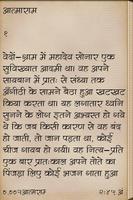 आत्माराम
१
वेदों-ग्राम में महादेव सोनार एक
सुविख्यात आदमी था। वह अपने
सायबान में प्रातः से संध्या तक
अँगीठी के सामने बैठा हुआ खटखट
किया करता था। यह लगातार ध्वनि
सुनने के लोग इतने अभ्यस्त हो गये
थे कि जब किसी कारण से वह बंद हो
जाती, तो जान पड़ता था, कोई
चीज गायब हो गयी। वह नित्य-प्रति
एक बार प्रातःकाल अपने तोते का
पिंजड़ा लिए कोई भजन गाता हुआ